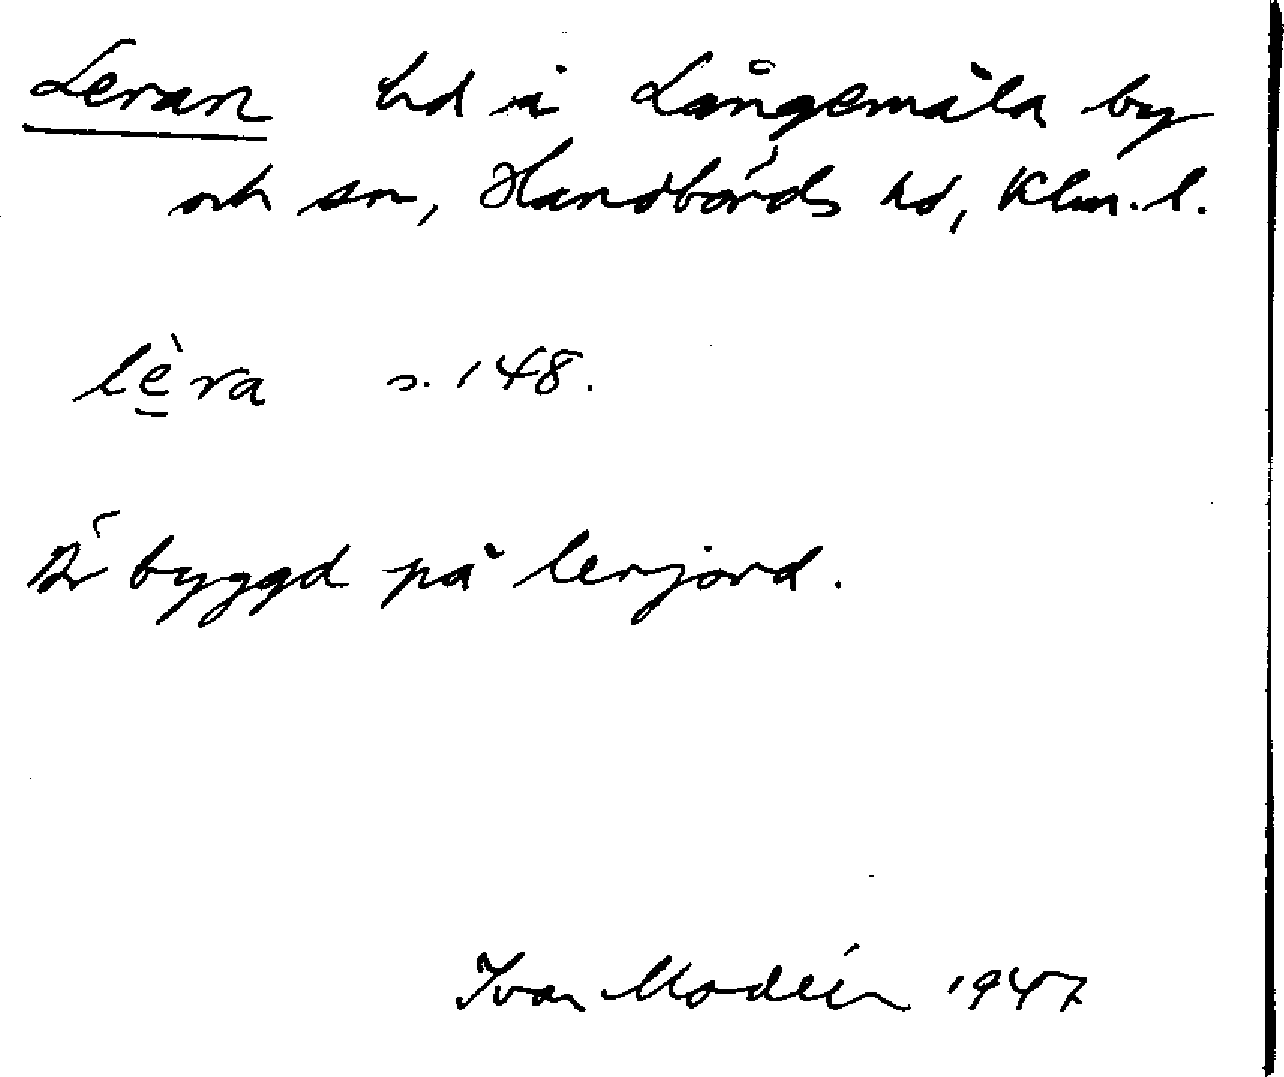 Leran hd å Långemåla by
och sn, Handbörds hd, Klm. l.
lèra s. 148.
Är byggd på lerjord.
Ivar Modéer 1947